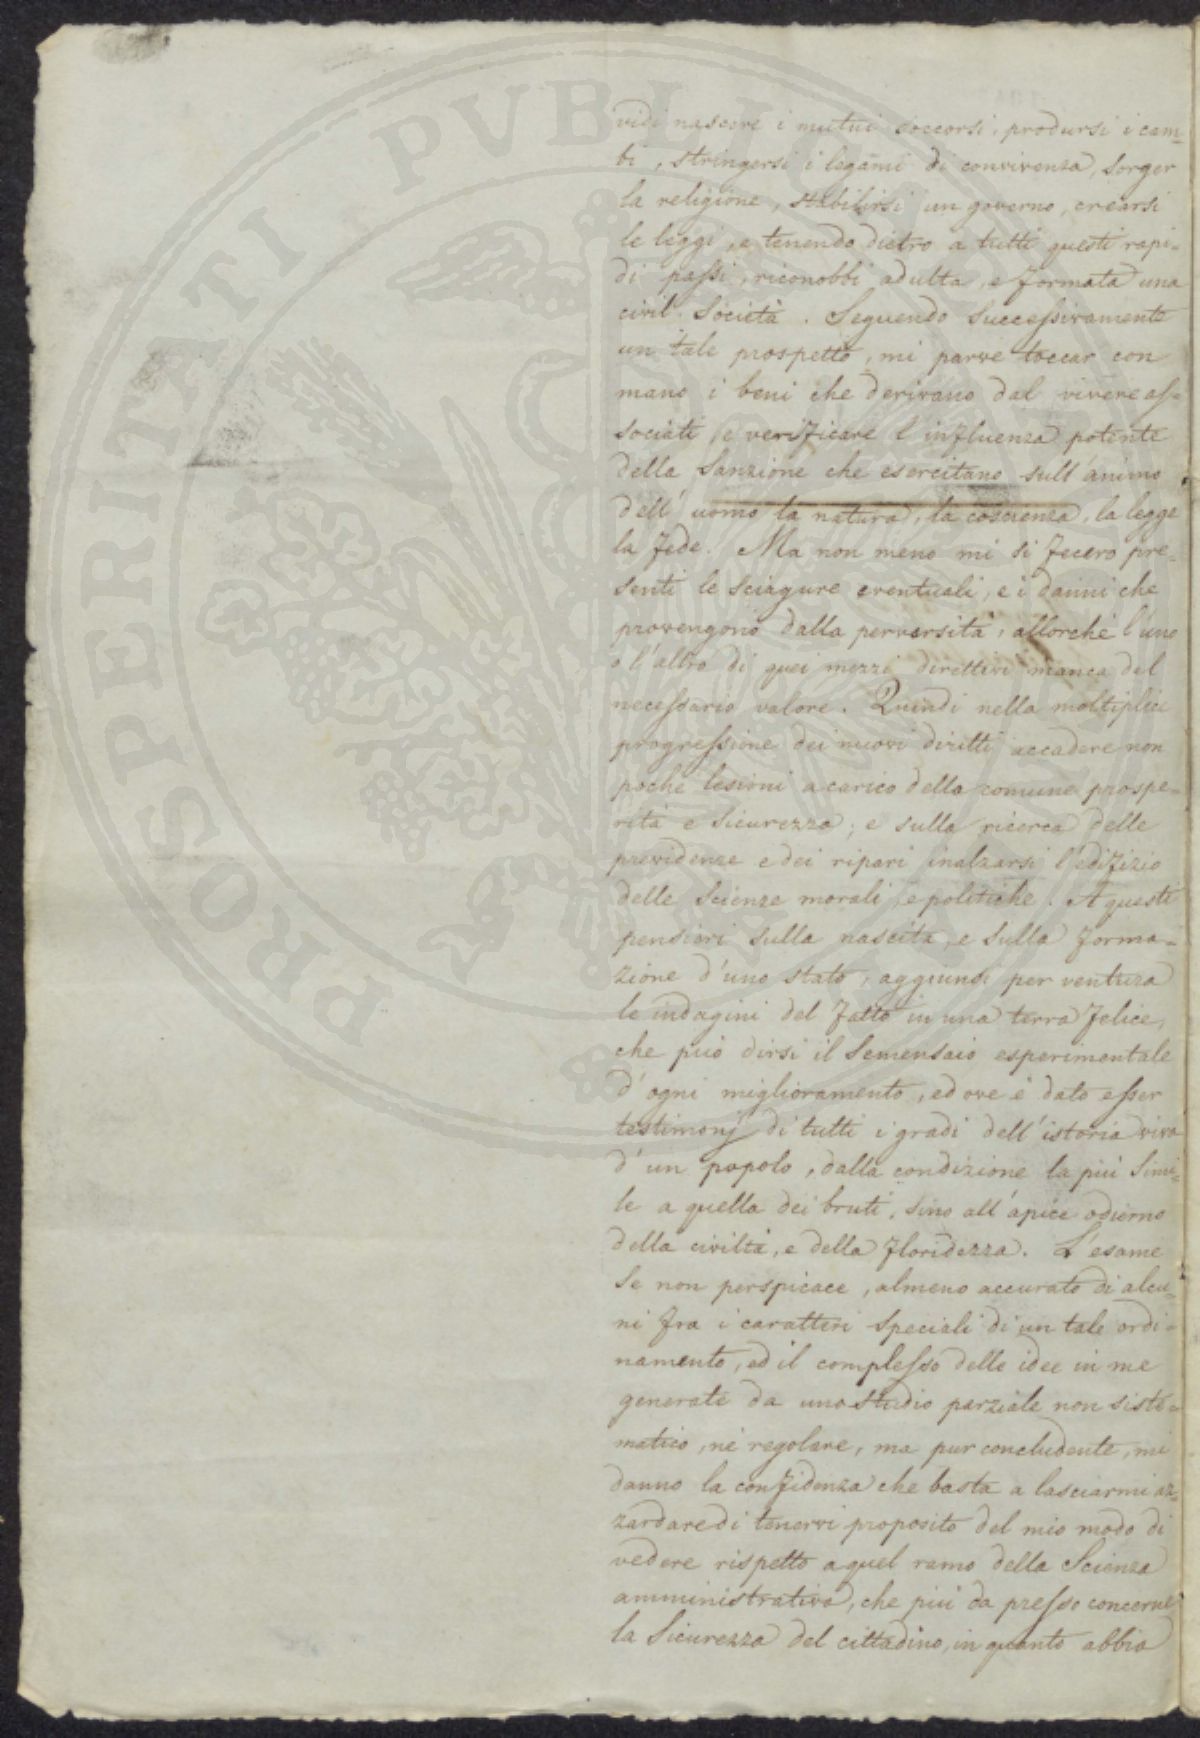 PROSPERITATI PVBLICAE
vidi nascere i mutui soccorsi, prodursi i cam-
bi, stringersi i legami di convivenza, sorger
la religione, stabilirsi un governo, crearsi
le leggi, e tenendo dietro a tutti questi rapi-
di passi, riconobbi adulta, e formata una
civil Società. Seguendo successivamente
un tale prospetto, mi parve toccar con
mano i beni che derivano dal vivere as-
sociati, e verificare l'influenza potente
della Sanzione che esercitano sull'animo
dell'uomo la natura, la coscienza, la legge
la fede. Ma non meno mi si fecero pre-
senti le sciagure eventuali, e i danni che
provengono dalla perversità, allorchè l'uno
o l'altro di quei mezzi direttivi manca del
necessario valore. Quindi nella moltiplice
progressione dei nuovi diritti accadere non
poche lesioni a carico della comune prospe-
rità e Sicurezza; e sulla ricerca delle
previdenze e dei ripari inalzarsi l'edifizio
delle Scienze morali, e politiche. A questi
pensieri sulla nascita, e sulla forma-
zione d'uno stato, aggiunsi per ventura
le indagini del fatto in una terra felice,
che può dirsi il Semensaio esperimentale
d'ogni miglioramento, ed ove è dato esser
testimonj di tutti i gradi dell'istoria viva
d'un popolo, dalla condizione la più Simi-
le a quella dei bruti, sino all'apice odierno
della civiltà, e della floridezza. L'esame
se non perspicace, almeno accurato di alcu-
ni fra i caratteri speciali di un tale ordi-
namento, ed il complesso delle idee in me
generate da uno studio parziale non siste-
matico, nè regolare, ma pur concludente, mi
danno la confidenza che basta a lasciarmi az-
zardare di tenervi proposito del mio modo di
vedere rispetto a quel ramo della Scienza
amministrativa, che più da presso concerne
la Sicurezza del cittadino, in quanto abbia